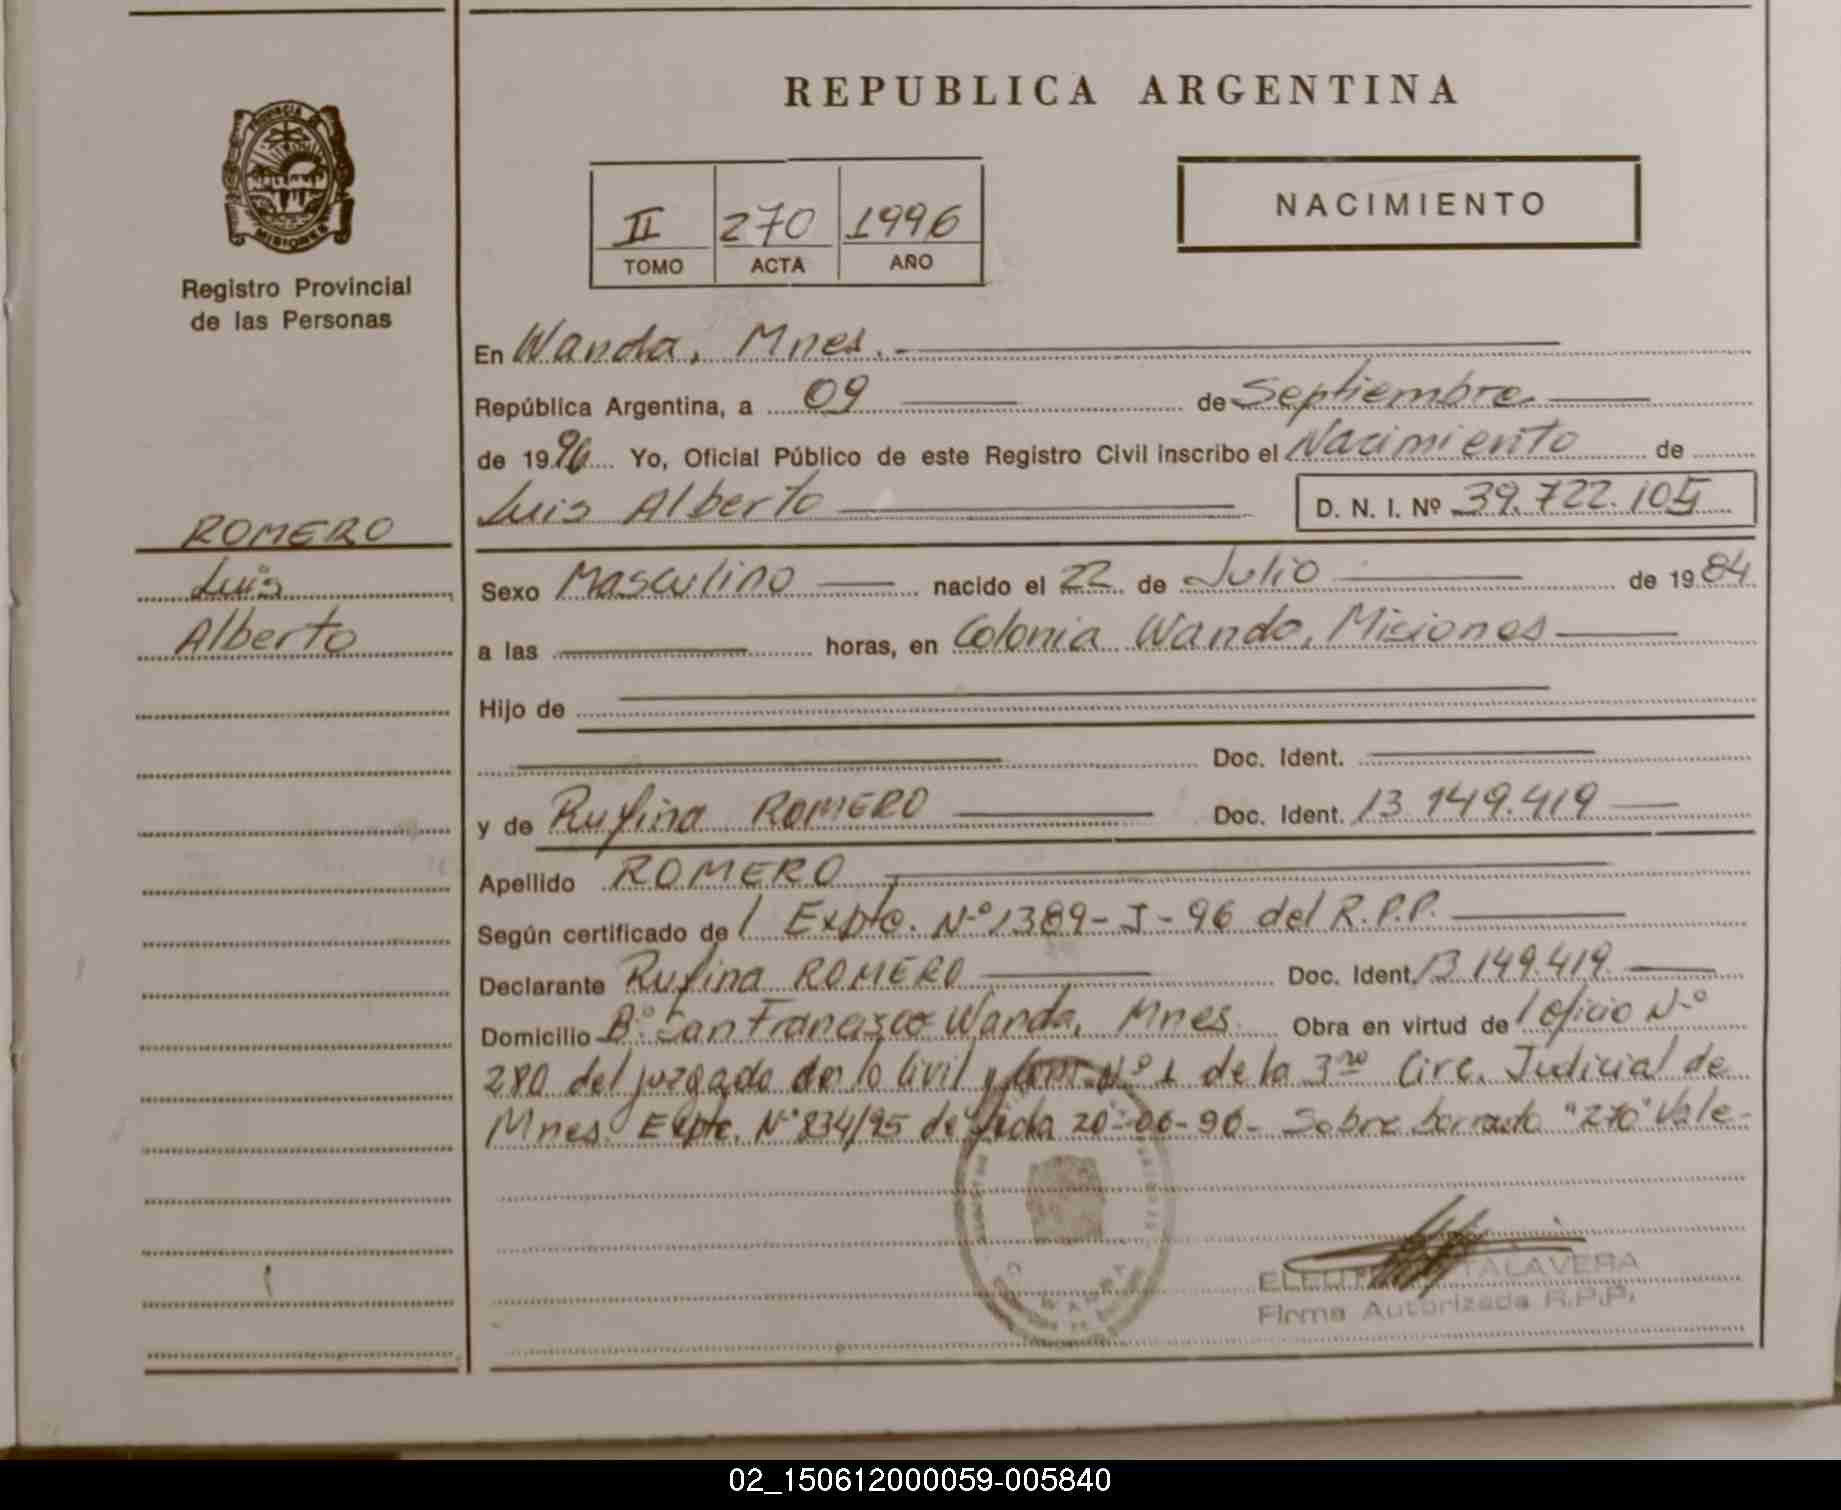 REPUBLICA ARGENTINA
PROVINCIA DE
MISIONES
Registro Provincial
de las Personas
II 270 1996
TOMO ACTA AÑO
NACIMIENTO
En Wanda, Mnes.
República Argentina, a 09 de Septiembre
de 1996 Yo, Oficial Público de este Registro Civil inscribo el Nacimiento de
Luis Alberto D. N. I. Nº 39.722.105
ROMERO
Luis
Alberto
Sexo Masculino nacido el 22 de Julio de 1984
a las horas, en Colonia Wanda, Misiones
Hijo de
Doc. Ident.
y de Rufina ROMERO Doc. Ident. 13.149.419
Apellido ROMERO
Según certificado de / Expte. Nº 1389-I-96 del R.P.P.
Declarante Rufina ROMERO Doc. Ident. 13.149.419.
Domicilio Bº San Francisco Wanda, Mnes. Obra en virtud de / oficio Nº
280 del juzgado de lo Civil y Com. Nº 1 de la 3ra Circ. Judicial de
Mnes. Expte. Nº 834/95 de fecha 20-06-96- Sobre borrado "270" Vale-
WANDA
TALAVERA
Firma Autorizada R.P.P.
02_150612000059-005840